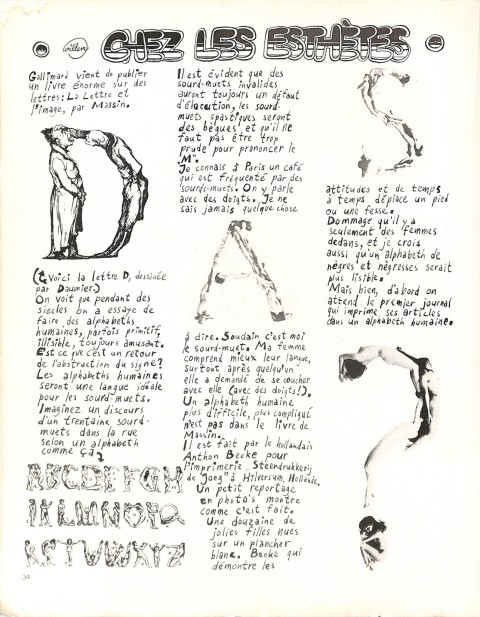 Willem
CHEZ LES ESTHÈTES
Gallimard vient de publier
un livre énorme sur des
lettres: La Lettre et
l'image, par Massin.
(Voici la lettre D, dessinée
par Daumier.)
On voit que pendant des
siecles on a essaye de
faire des alphabeths
humaines, parfois primitif,
illisible, toujours amusant.
Est ce que c'est un retour
de l'abstraction du signe?
Les alphabeths humaines
seront une langue idéale
pour les sourd-muets.
Imaginez un discours
d'un trentaine sourd-
muets dans la rue
selon un alphabeth
comme ça
ABCDEFGH
IKLMNOPQ
RSTVWXYZ
34
Il est évident que des
sourd-muets invalides
auront toujours un défaut
d'élocution, les sourd-
muets spastiques seront
des bègues et qu'il ne
faut pas être trop
prude pour prononcer le
"M".
Je connais à Paris un café
qui est fréquenté par des
sourds-muets. On y parle
avec des doigts. Je ne
sais jamais quelque chose
à dire. Soudain c'est moi
le sourd-muet. Ma femme
comprend mieux leur langue,
surtout après quelqu'un
elle a demandé de se coucher
avec elle (avec des doigts!).
Un alphabeth humaine
plus difficile, plus compliqué
n'est pas dans le livre de
Massin.
Il est fait par le hollandais
Anthon Beeke pour
l'imprimerie "Steendrukkerij
de Jong" à Hilversum, Hollande.
Un petit reportage
en photo's montre
comme c'est fait.
Une douzaine de
jolies filles nues
sur un plancher
blanc. Beeke qui
démontre les
attitudes et de temps
à temps déplace un pied
ou une fesse.
Dommage qu'il y a
seulement des femmes
dedans, et je crois
aussi qu'un alphabeth de
nègres et négresses serait
plus lisible.
Mais bien, d'abord on
attend le premier journal
qui imprime ses articles
dans un alphabeth humaine.